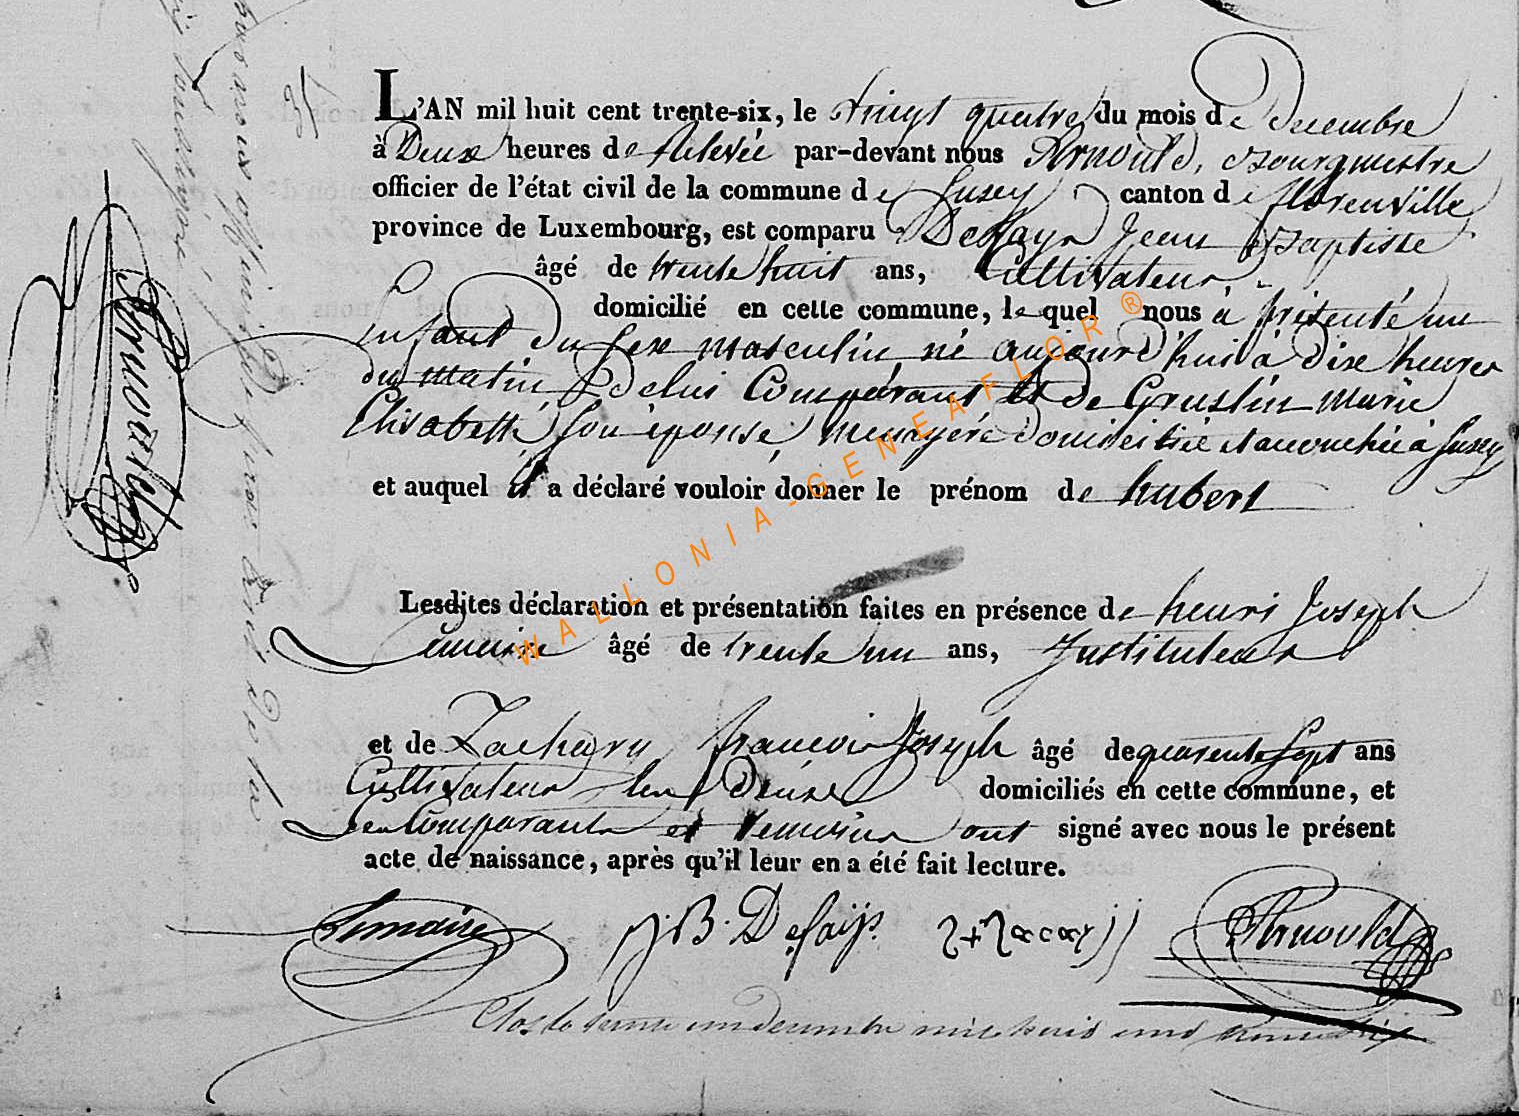 L'AN mil huit cent trente-six, le vingt quatre du mois de Decembre
à Deux heures de Relevée par-devant nous Arnould, Bourgmestre
officier de l'état civil de la commune de Suxey canton de florenville
province de Luxembourg, est comparu Defays Jean Baptiste
âgé de trente huit ans, Cultivateur
domicilié en cette commune, lequel nous à présenté un
Enfant du sexe masculin né aujourd'hui à dix heures
du matin de lui Comparant et de Gruslin Marie
Elisabeth son éponse, menagère domiciliée et accouchée à Suxey
et auquel il a déclaré vouloir donner le prénom de hubert
Lesdites déclaration et présentation faites en présence de henri Joseph
Lemaire âgé de trente un ans, Instituteur
et de Zachary françois Joseph âgé de quarente sept ans
Cultivateur les Deux domiciliés en cette commune, et
les Comparant et temoins ont signé avec nous le présent
acte de naissance, après qu'il leur en a été fait lecture.
Lemaire J. B. Defays. Zacary Arnould
Clos le trente un decembre mil huit cent trente six
Arnould
WALLONIA-GENEAFLOR ®